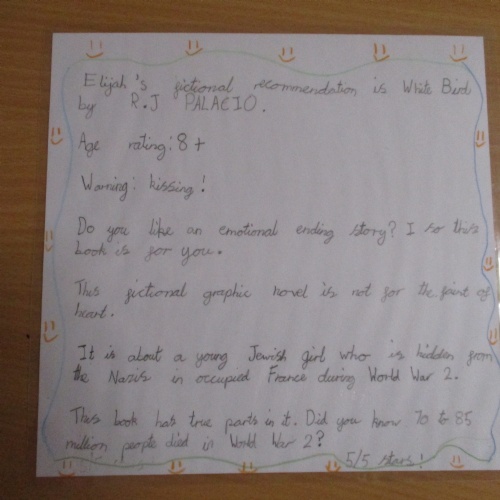 Elijah's fictional recommendation is White Bird
by R.J PALACIO.
Age rating: 8+
Warning: kissing!
Do you like an emotional ending story? I so this
book is for you.
This fictional graphic novel is not for the faint of
heart.
It is about a young Jewish girl who is hidden from
the Nazis in occupied France during World War 2.
This book has true parts in it. Did you know 70 to 85
million people died in World War 2?
5/5 stars!